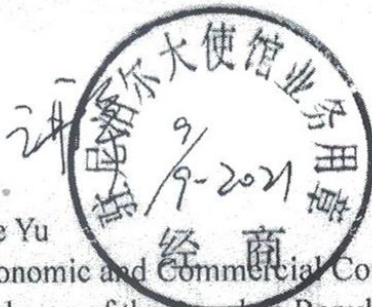 驻尼泊尔大使馆业务用章
9/9-2021
经 商
e Yu
onomic and Commercial Co